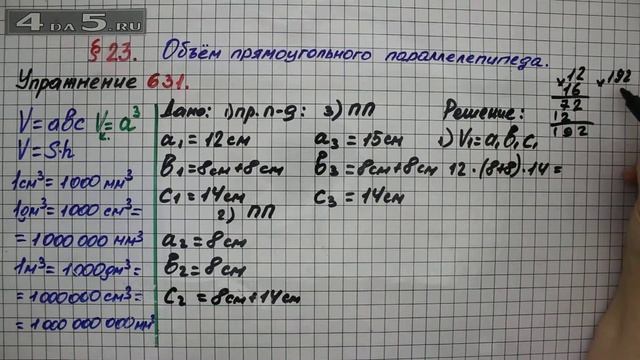 4DA5.RU
§ 23. Объём прямоугольного параллелепипеда.
Упражнение 631.
V=abc V=a³
V=S·h
1см³=1000 мм³
1дм³=1000 см³=
=1000 000 мм³
1м³=1000дм³=
=1000000см³=
=1000 000 000мм³
Дано: 1) пр. п-д: 3) ПП
a₁=12см a₃=15см
b₁=8см+8см b₃=8см+8см
c₁=14см c₃=14см
2) ПП
a₂=8см
b₂=8см
c₂=8см+14см
Решение:
1) V₁=a₁b₁c₁
12·(8+8)·14=
×12
16
72
12
192
×192